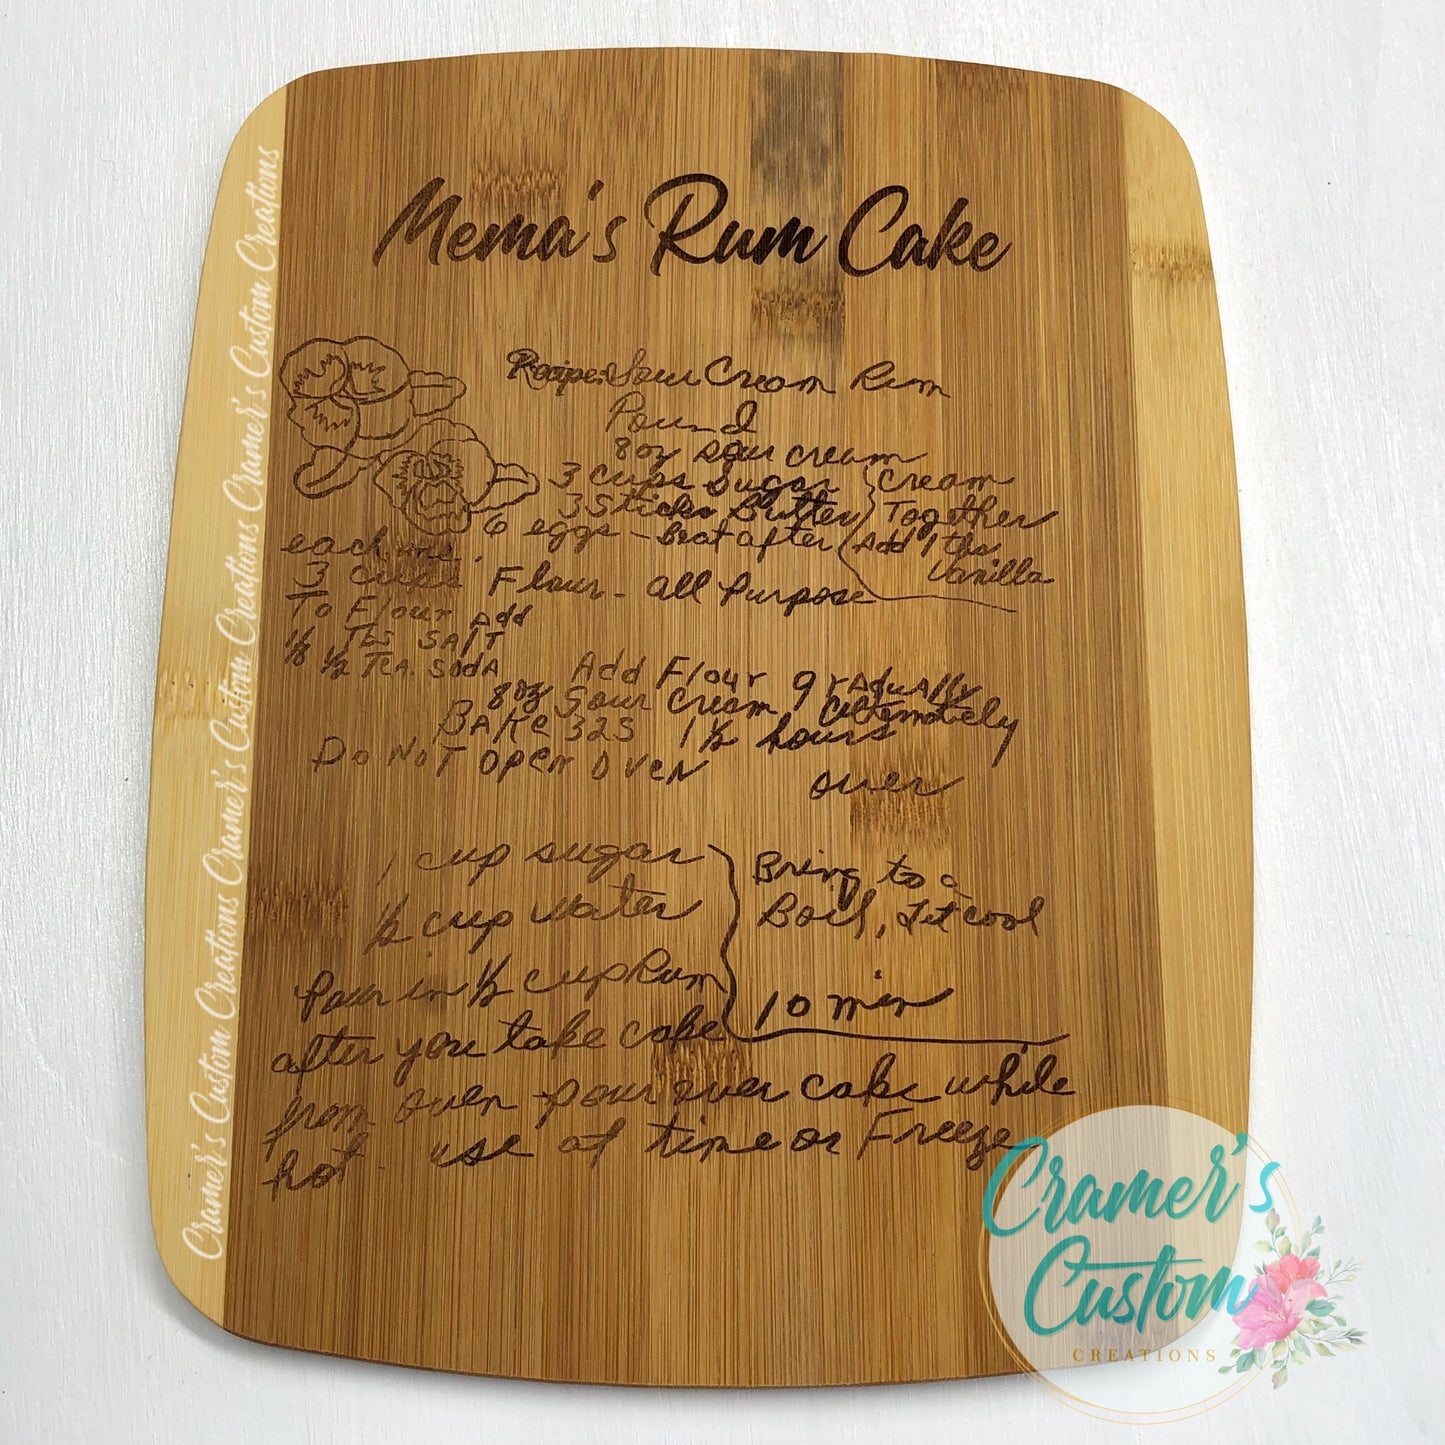 Mema's Rum Cake
Recipe: Sour Cream Rum
Pound
8oz sour cream
3 cups Sugar } Cream
3 Sticks Butter } Together
6 eggs - Beat after Add 1 tbs
each one. Vanilla
3 cups Flour - all Purpose
To Flour Add
Tbs SAlT
1/2 TEA. SodA
Add Flour grAduAlly
8oz Sour Cream,
BAKE 325 1 1/2 hours
Do NoT Open OveN over
1 cup sugar
1/2 cup Water
Pour in 1/2 cup Rum
after you take cake
Bring to a
Boil, Let cool
10 min
from oven - pour over cake while
hot - use at time or Freeze
Cramer's Custom Creations Cramer's Custom Creations Cramer's Custom Creations Cramer's Custom Creations
Cramer's
Custom
CREATIONS